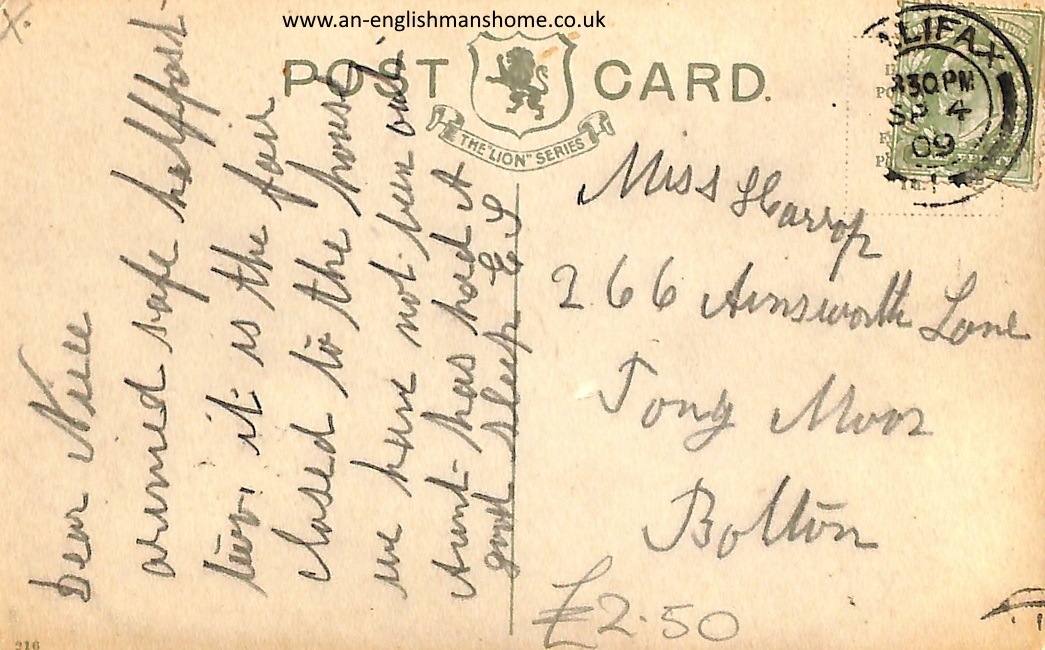 www.an-englishmanshome.co.uk
POST CARD.
THE "LION" SERIES
HALIFAX
8 30 PM
SP 4
09
Dear Niece
arrived safe halfpast
two. it is the fair
closed to the house
we have not been out
Aunt has had a
good sleep E S
Miss Harrop
266 Ainsworth Lane
Tong Moor
Bolton
£2.50
216